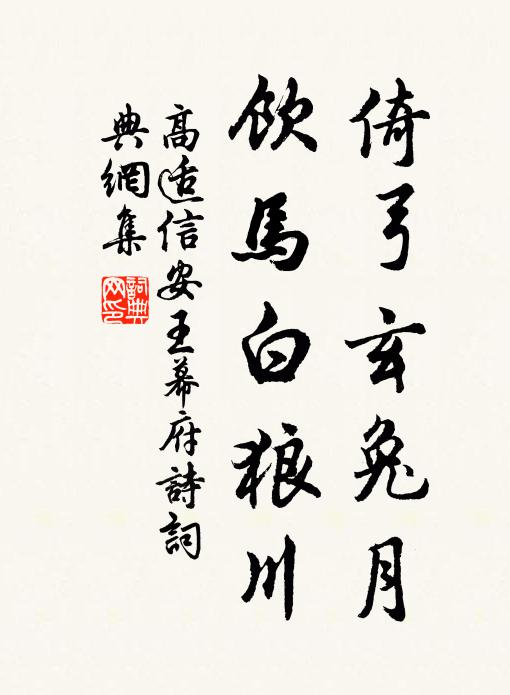 倚弓玄兔月
飲馬白狼川
高适信安王幕府詩詞
典網集
詞典
网印